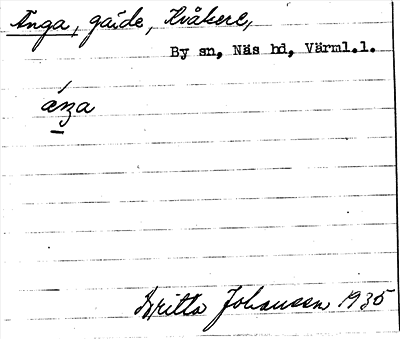 Änga, gårde, Kvåkere,
By sn, Näs hd, Värml.l.
äŋa
Britta Johansson 1935